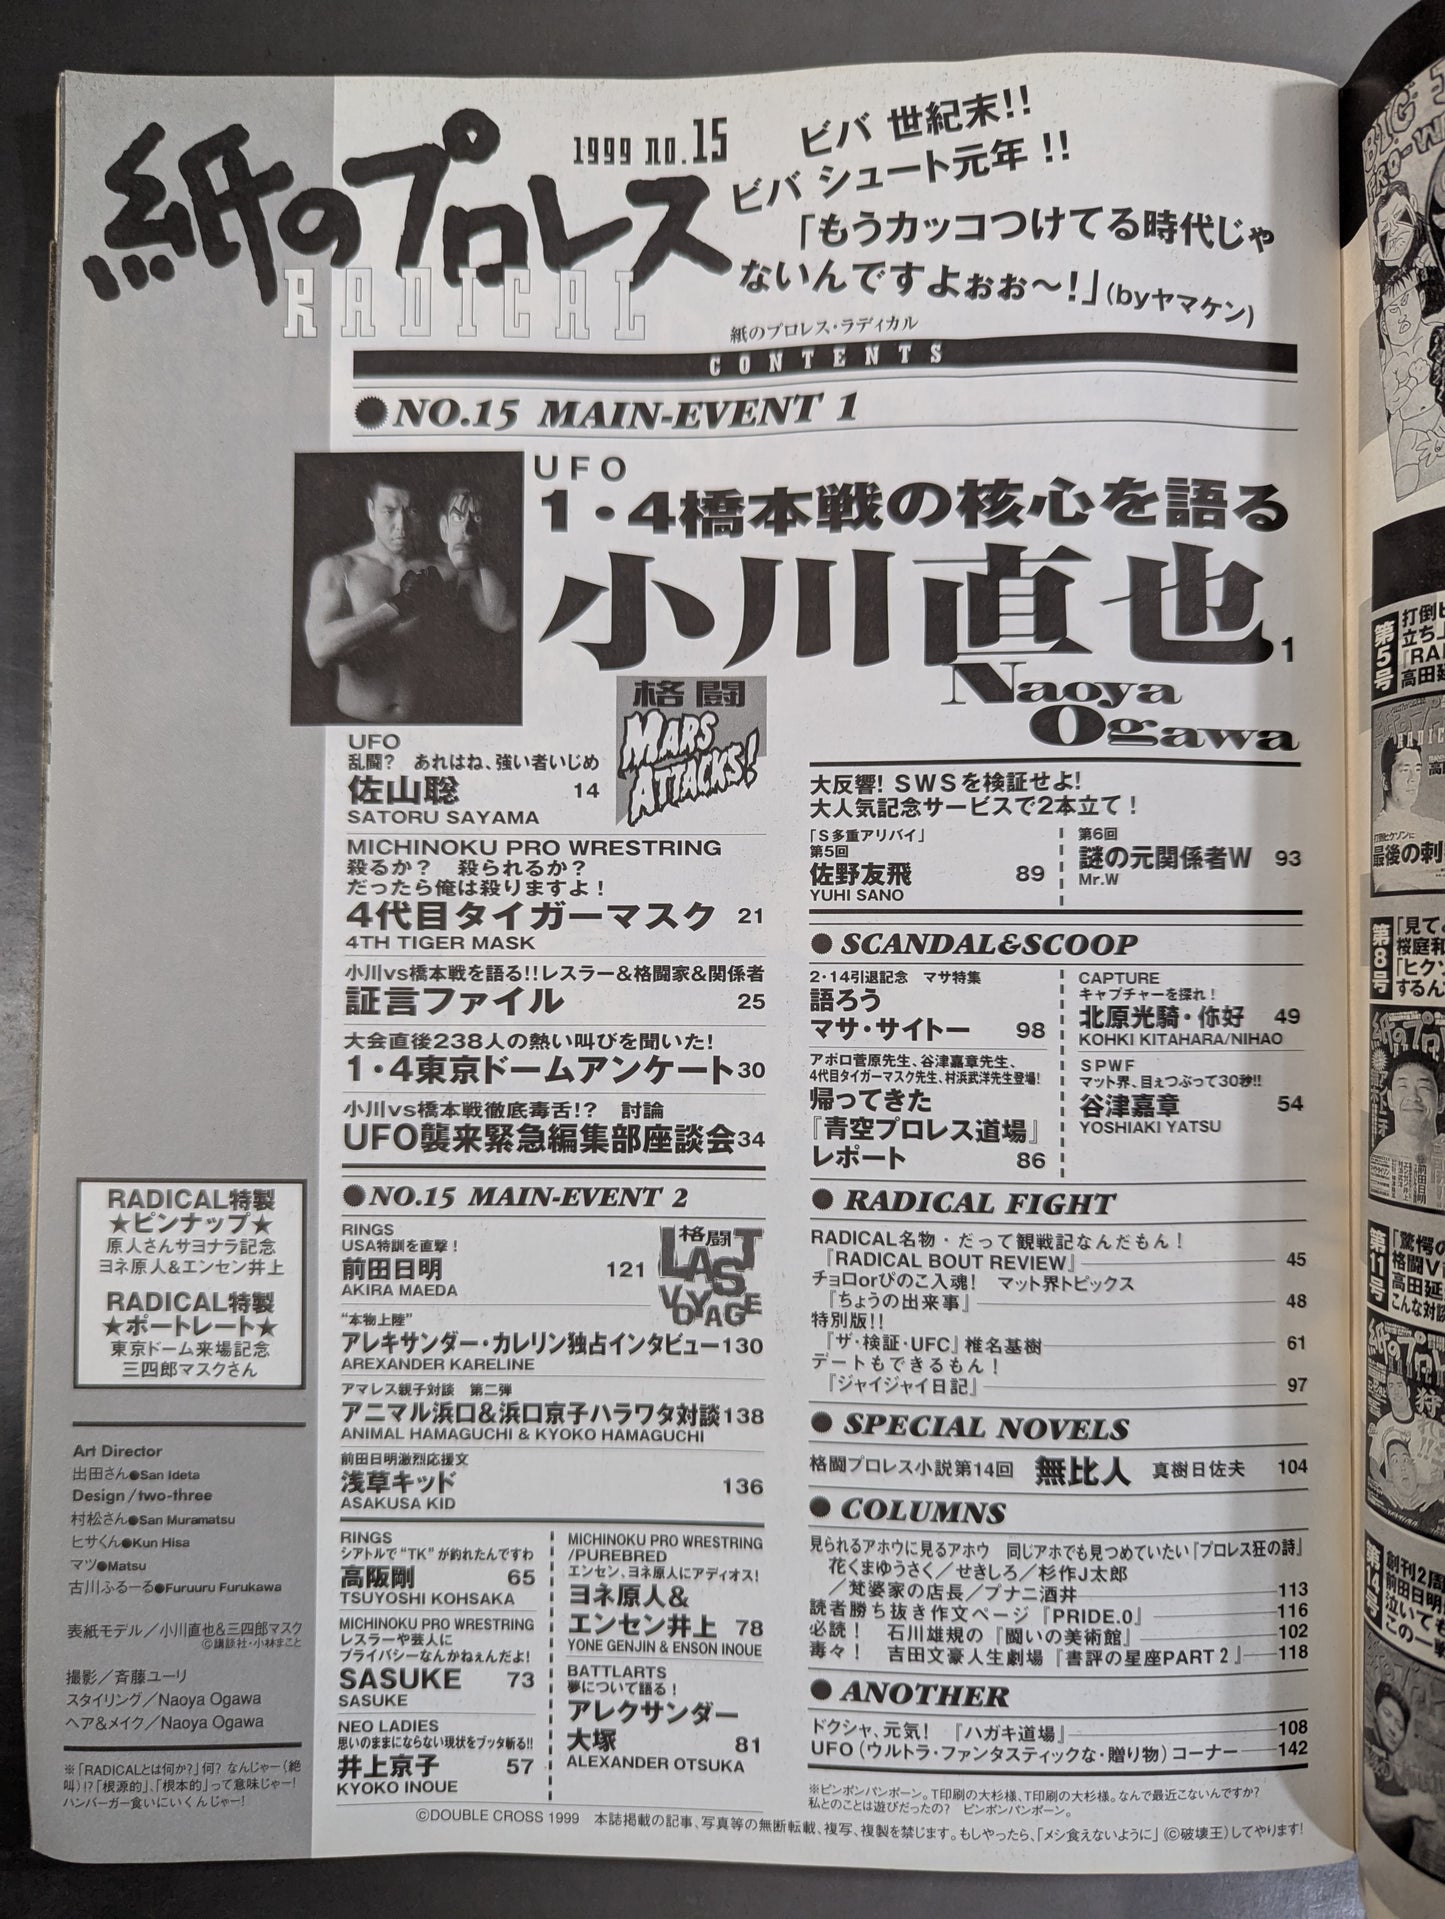 紙のプロレス
RADICAL
1999 no.15
ビバ 世紀末!!
ビバ シュート元年!!
「もうカッコつけてる時代じゃ
ないんですよぉぉ〜!」(byヤマケン)
紙のプロレス・ラディカル
CONTENTS
●NO.15 MAIN-EVENT 1
UFO
1・4橋本戦の核心を語る
小川直也 1
Naoya
Ogawa
格闘
MARS
ATTACKS!
UFO
乱闘? あれはね、強い者いじめ
佐山聡 14
SATORU SAYAMA
MICHINOKU PRO WRESTRING
殺るか? 殺られるか?
だったら俺は殺りますよ!
4代目タイガーマスク 21
4TH TIGER MASK
小川vs橋本戦を語る!!レスラー&格闘家&関係者
証言ファイル 25
大会直後238人の熱い叫びを聞いた!
1・4東京ドームアンケート30
小川vs橋本戦徹底毒舌!? 討論
UFO襲来緊急編集部座談会34
●NO.15 MAIN-EVENT 2
格闘
LAST
VOYAGE
RINGS
USA特訓を直撃!
前田日明 121
AKIRA MAEDA
“本物上陸”
アレキサンダー・カレリン独占インタビュー130
AREXANDER KARELINE
アマレス親子対談 第二弾
アニマル浜口&浜口京子ハラワタ対談138
ANIMAL HAMAGUCHI & KYOKO HAMAGUCHI
前田日明激烈応援文
浅草キッド 136
ASAKUSA KID
RINGS
シアトルで“TK”が釣れたんですわ
高阪剛 65
TSUYOSHI KOHSAKA
MICHINOKU PRO WRESTRING
レスラーや芸人に
プライバシーなんかねぇんだよ!
SASUKE 73
SASUKE
NEO LADIES
思いのままにならない現状をブッタ斬る!!
井上京子 57
KYOKO INOUE
MICHINOKU PRO WRESTRING
/PUREBRED
エンセン、ヨネ原人にアディオス!
ヨネ原人&
エンセン井上 78
YONE GENJIN & ENSON INOUE
BATTLARTS
夢について語る!
アレクサンダー
大塚 81
ALEXANDER OTSUKA
大反響! SWSを検証せよ!
大人気記念サービスで2本立て!
「S多重アリバイ」
第5回
佐野友飛 89
YUHI SANO
第6回
謎の元関係者W 93
Mr.W
●SCANDAL&SCOOP
2・14引退記念 マサ特集
語ろう
マサ・サイトー 98
アポロ菅原先生、谷津嘉章先生、
4代目タイガーマスク先生、村浜武洋先生登場!
帰ってきた
『青空プロレス道場』
レポート 86
CAPTURE
キャプチャーを探れ!
北原光騎・你好 49
KOHKI KITAHARA/NIHAO
SPWF
マット界、目ぇつぶって30秒!!
谷津嘉章 54
YOSHIAKI YATSU
●RADICAL FIGHT
RADICAL名物・だって観戦記なんだもん!
『RADICAL BOUT REVIEW』 45
チョロorぴのこ入魂! マット界トピックス
『ちょうの出来事』 48
特別版!!
『ザ・検証・UFC』椎名基樹 61
デートもできるもん!
『ジャイジャイ日記』 97
●SPECIAL NOVELS
格闘プロレス小説第14回 無比人 真樹日佐夫 104
●COLUMNS
見られるアホウに見るアホウ 同じアホでも見つめていたい『プロレス狂の詩』
花くまゆうさく/せきしろ/杉作J太郎
/梵婆家の店長/プナニ酒井 113
読者勝ち抜き作文ページ『PRIDE.0』 116
必読! 石川雄規の『闘いの美術館』 102
毒々! 吉田文豪人生劇場『書評の星座PART2』 118
●ANOTHER
ドクシャ、元気! 『ハガキ道場』 108
UFO(ウルトラ・ファンタスティックな・贈り物)コーナー 142
※ピンポンパンポーン。T印刷の大杉様、T印刷の大杉様。なんで最近こないんですか?
私とのことは遊びだったの? ピンポンパンポーン。
RADICAL特製
★ピンナップ★
原人さんサヨナラ記念
ヨネ原人&エンセン井上
RADICAL特製
★ポートレート★
東京ドーム来場記念
三四郎マスクさん
Art Director
出田さん●San Ideta
Design/two-three
村松さん●San Muramatsu
ヒサくん●Kun Hisa
マツ●Matsu
古川ふるーる●Furuuru Furukawa
表紙モデル/小川直也&三四郎マスク
©講談社・小林まこと
撮影/斉藤ユーリ
スタイリング/Naoya Ogawa
ヘア&メイク/Naoya Ogawa
※「RADICALとは何か?」何? なんじゃー(絶
叫)!?「根源的」、「根本的」って意味じゃー!
ハンバーガー食いにいくんじゃー!
©DOUBLE CROSS 1999 本誌掲載の記事、写真等の無断転載、複写、複製を禁じます。もしやったら、「メシ食えないように」(©破壊王)してやります!
第5号
第8号
第11号
第14号